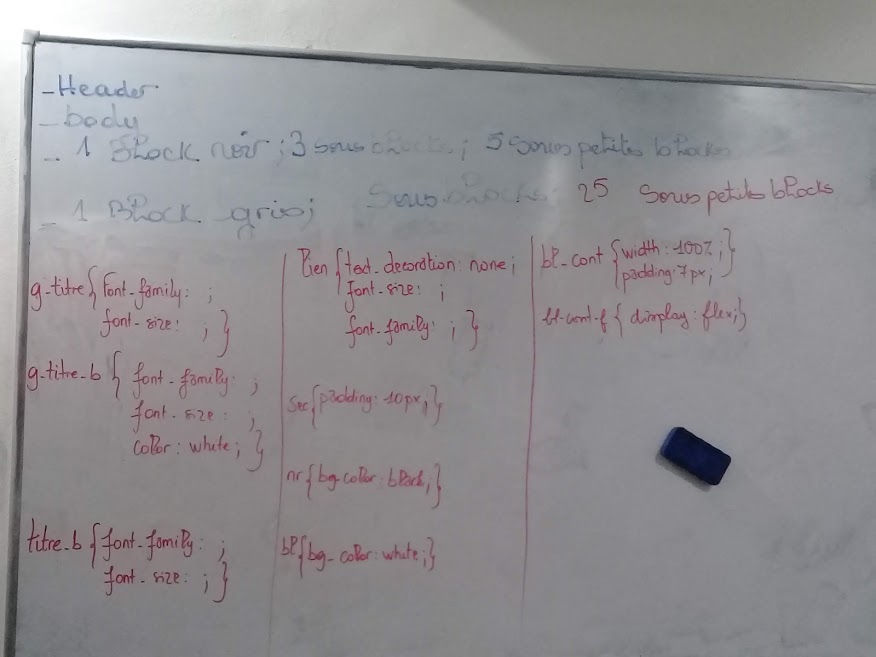 - Header
- body
- 1 Block noir ; 3 sous blocks ; 5 sous petites blocks
- 1 Block gris ; Sous blocks : 25 Sous petites blocks
g-titre { Font-family : ;
font-size : ; }
g-titre-b { font-family : ;
font-size : ;
color : white ; }
titre-b { font-family : ;
font-size : ; }
lien { text-decoration : none ;
font-size : ;
font-family : ; }
sec { padding : 10px ; }
nr { bg-color : black ; }
bl { bg-color : white ; }
bl-cont { width : 100% ; }
padding : 7px ;
bl-cont-f { display : flex ; }